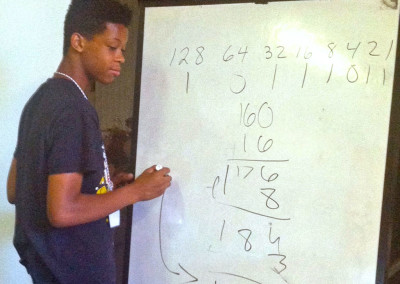 128 64 32 16 8 4 2 1
1 0 1 1 1 0 1 1
160
16
176
8
184
3